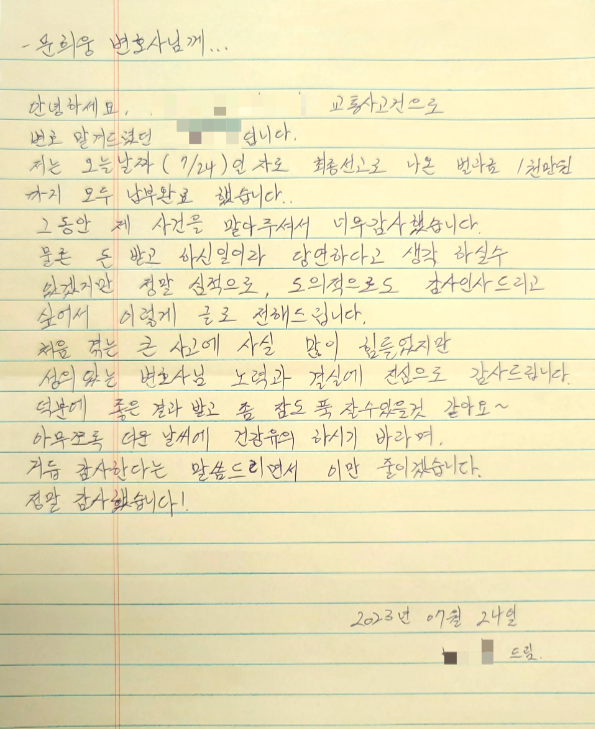 - 문희웅 변호사님께...
안녕하세요. 교통사고건으로
변호 맡겨드렸던 입니다.
저는 오늘날짜 (7/24)인 자로 최종선고로 나온 벌과금 1천만원
까지 모두 납부완료 했습니다..
그동안 제 사건을 맡아주셔서 너무감사했습니다.
물론 돈 받고 하신일이라 당연하다고 생각 하실수
있겠지만 정말 심적으로, 도의적으로도 감사인사드리고
싶어서 이렇게 글로 전해드립니다.
처음 겪는 큰 사고에 사실 많이 힘들었지만
성의있는 변호사님 노력과 결실에 진심으로 감사드립니다.
덕분에 좋은 결과 받고 좀 잠도 푹 잘수있을것 같아요~
아무쪼록 더운 날씨에 건강유의 하시기 바라며,
거듭 감사한다는 말씀드리면서 이만 줄이겠습니다.
정말 감사했습니다!
2023년 07월 24일
드림.